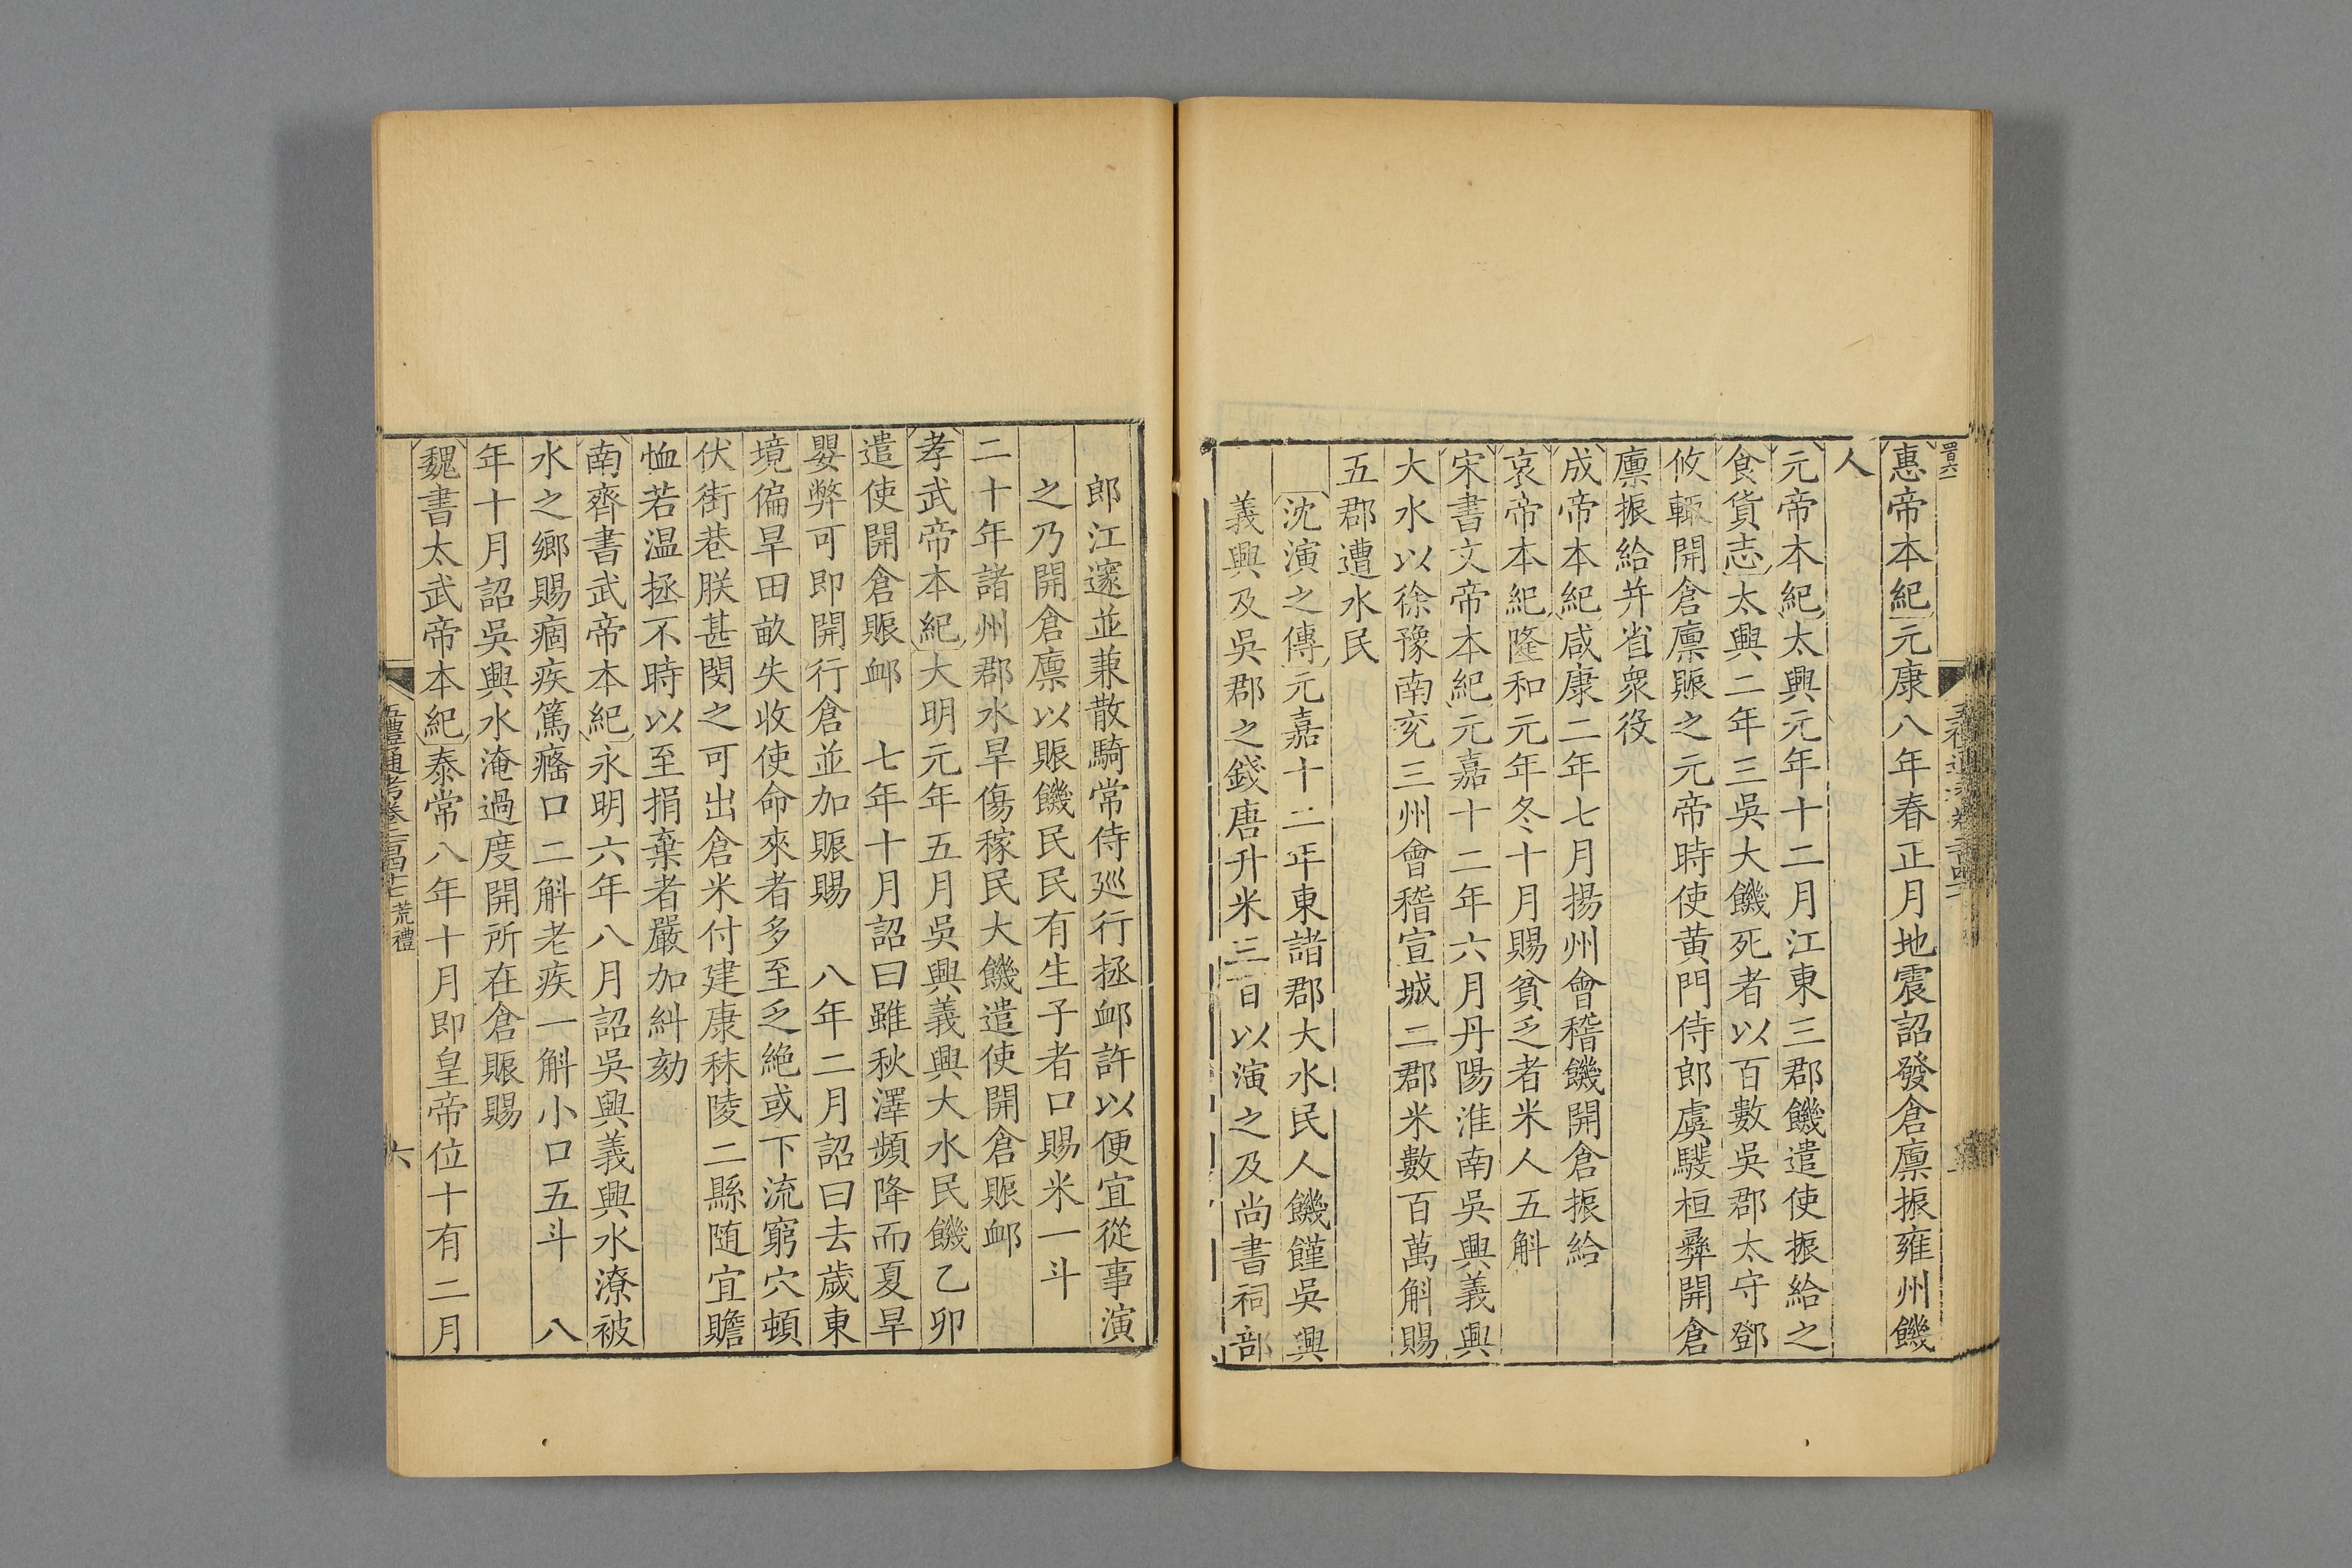 惠帝本紀元康八年春正月地震詔發倉廩振雍州饑
人
元帝本紀太興元年十二月江東三郡饑遣使振給之
食貨志太興二年三吳大饑死者以百數吳郡太守鄧
攸輒開倉廩賑之元帝時使黃門侍郎虞𩥉桓彝開倉
廩振給并省衆役
成帝本紀咸康二年七月揚州會稽饑開倉振給
哀帝本紀隆和元年冬十月賜貧乏者米人五斛
宋書文帝本紀元嘉十二年六月丹陽淮南吳興義興
大水以徐豫南兗三州會稽宣城二郡米數百萬斛賜
五郡遭水民
沈演之傳元嘉十二年東諸郡大水民人饑饉吳興
義興及吳郡之錢唐升米三百以演之及尚書祠部
郎江邃並兼散騎常侍巡行拯卹許以便宜從事演
之乃開倉廩以賑饑民民有生子者口賜米一斗
二十年諸州郡水旱傷稼民大饑遣使開倉賑卹
孝武帝本紀大明元年五月吳興義興大水民饑乙卯
遣使開倉賑卹　七年十月詔曰雖秋澤頻降而夏旱
嬰弊可即開行倉並加賑賜　八年二月詔曰去歲東
境偏旱田畝失收使命來者多至乏絶或下流窮穴頓
伏街巷朕甚閔之可出倉米付建康秣陵二縣随宜贍
恤若温拯不時以至捐棄者嚴加糾劾
南齊書武帝本紀永明六年八月詔吳興義興水潦被
水之鄉賜痼疾篤癃口二斛老疾一斛小口五斗　八
年十月詔吳興水淹過度開所在倉賑賜
魏書太武帝本紀泰常八年十月即皇帝位十有二月
五禮通考卷二百四十七 荒禮
六